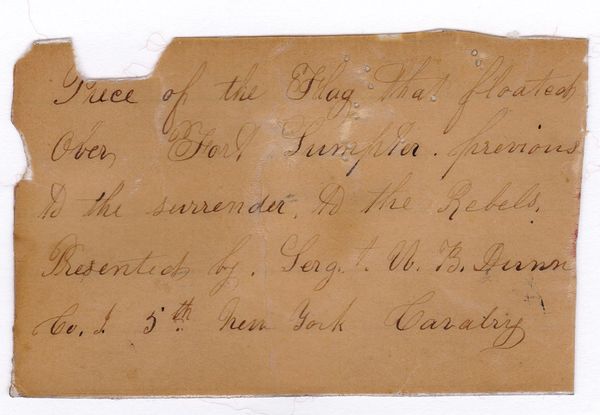 Piece of the Flag that floated
Over Fort Sumpter. previous
to the surrender, to the Rebels.
Presented by. Serg.t. W. B. Dunn
Co. I. 5th New York Cavalry